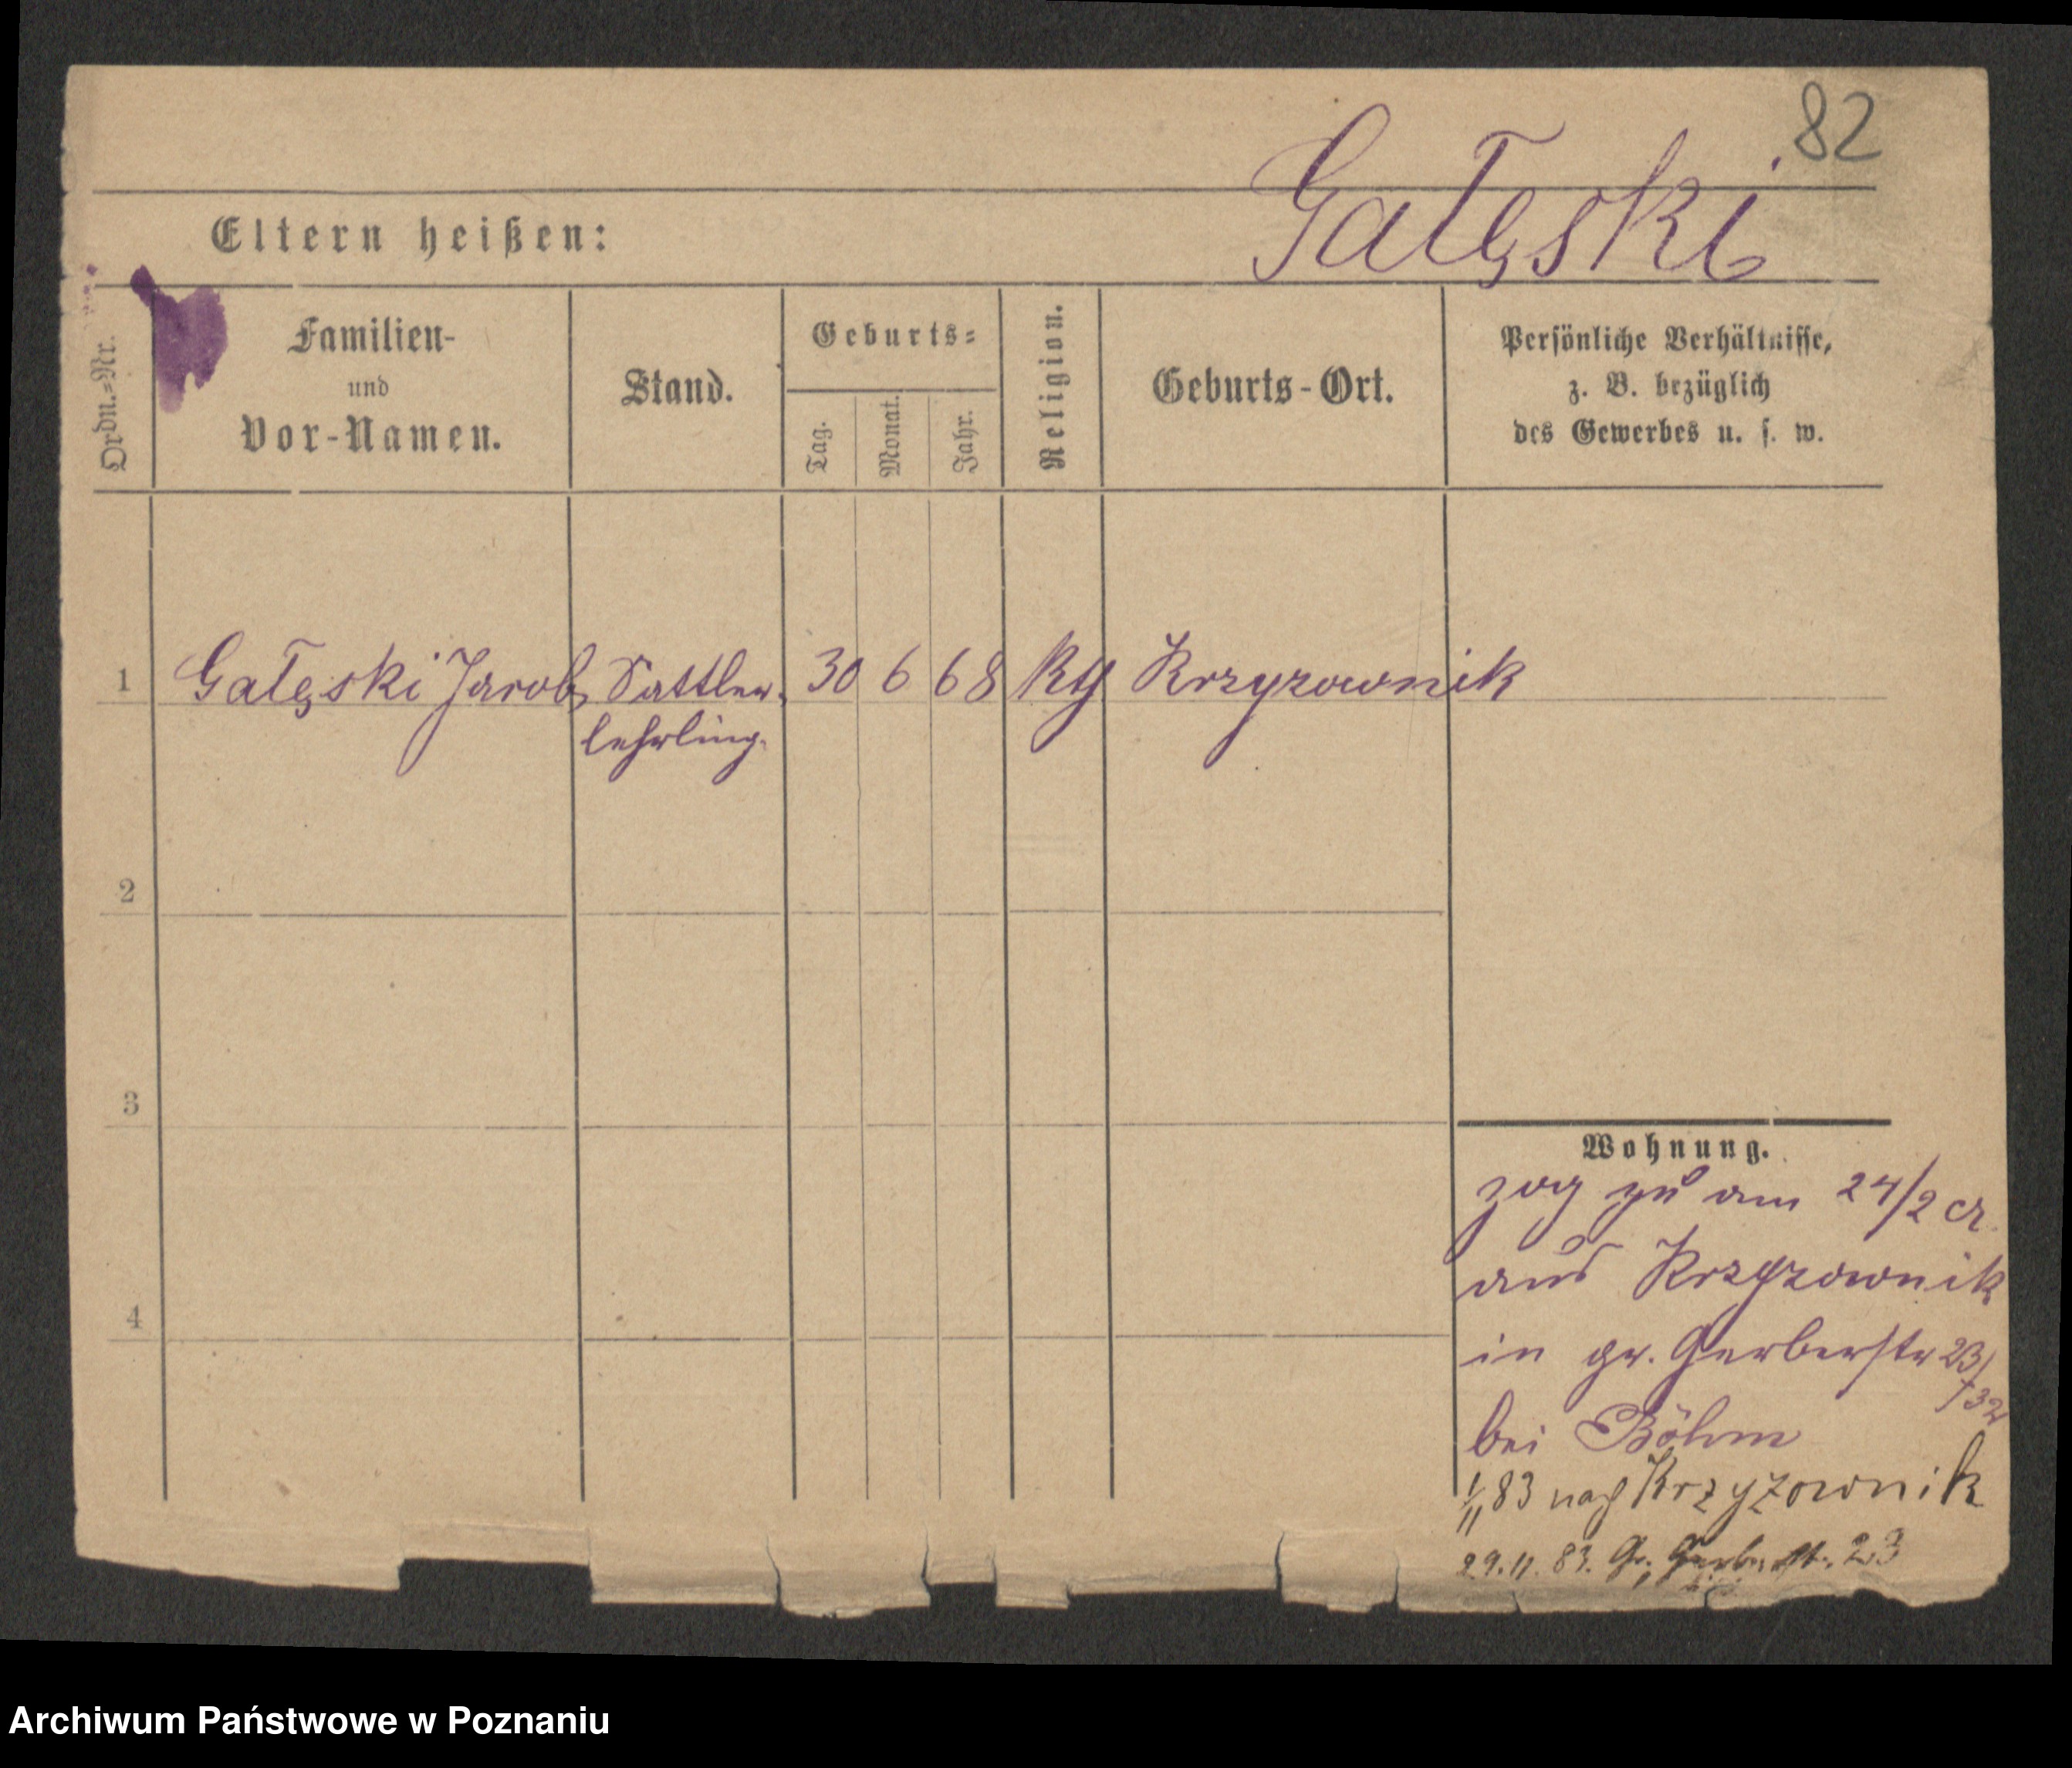 82
Gałęski
Eltern heißen:
Ordn.=Nr.
Familien-
und
Vor-Namen.
Stand.
Geburts=
Tag.
Monat.
Jahr.
Religion.
Geburts-Ort.
Persönliche Verhältnisse,
z. B. bezüglich
des Gewerbes u. s. w.
1 Gałęski Jacob Sattler- 30 6 68 kth Krzyzownik
lehrling.
2
3
4
Wohnung.
zog zu am 24/2 cr.
aus Krzyzownik
in gr. Gerberstr 23/
bei Böhm
1/11 83 nach Krzyzownik
29.11.83. Gr. Gerberstr. 23
Archiwum Państwowe w Poznaniu